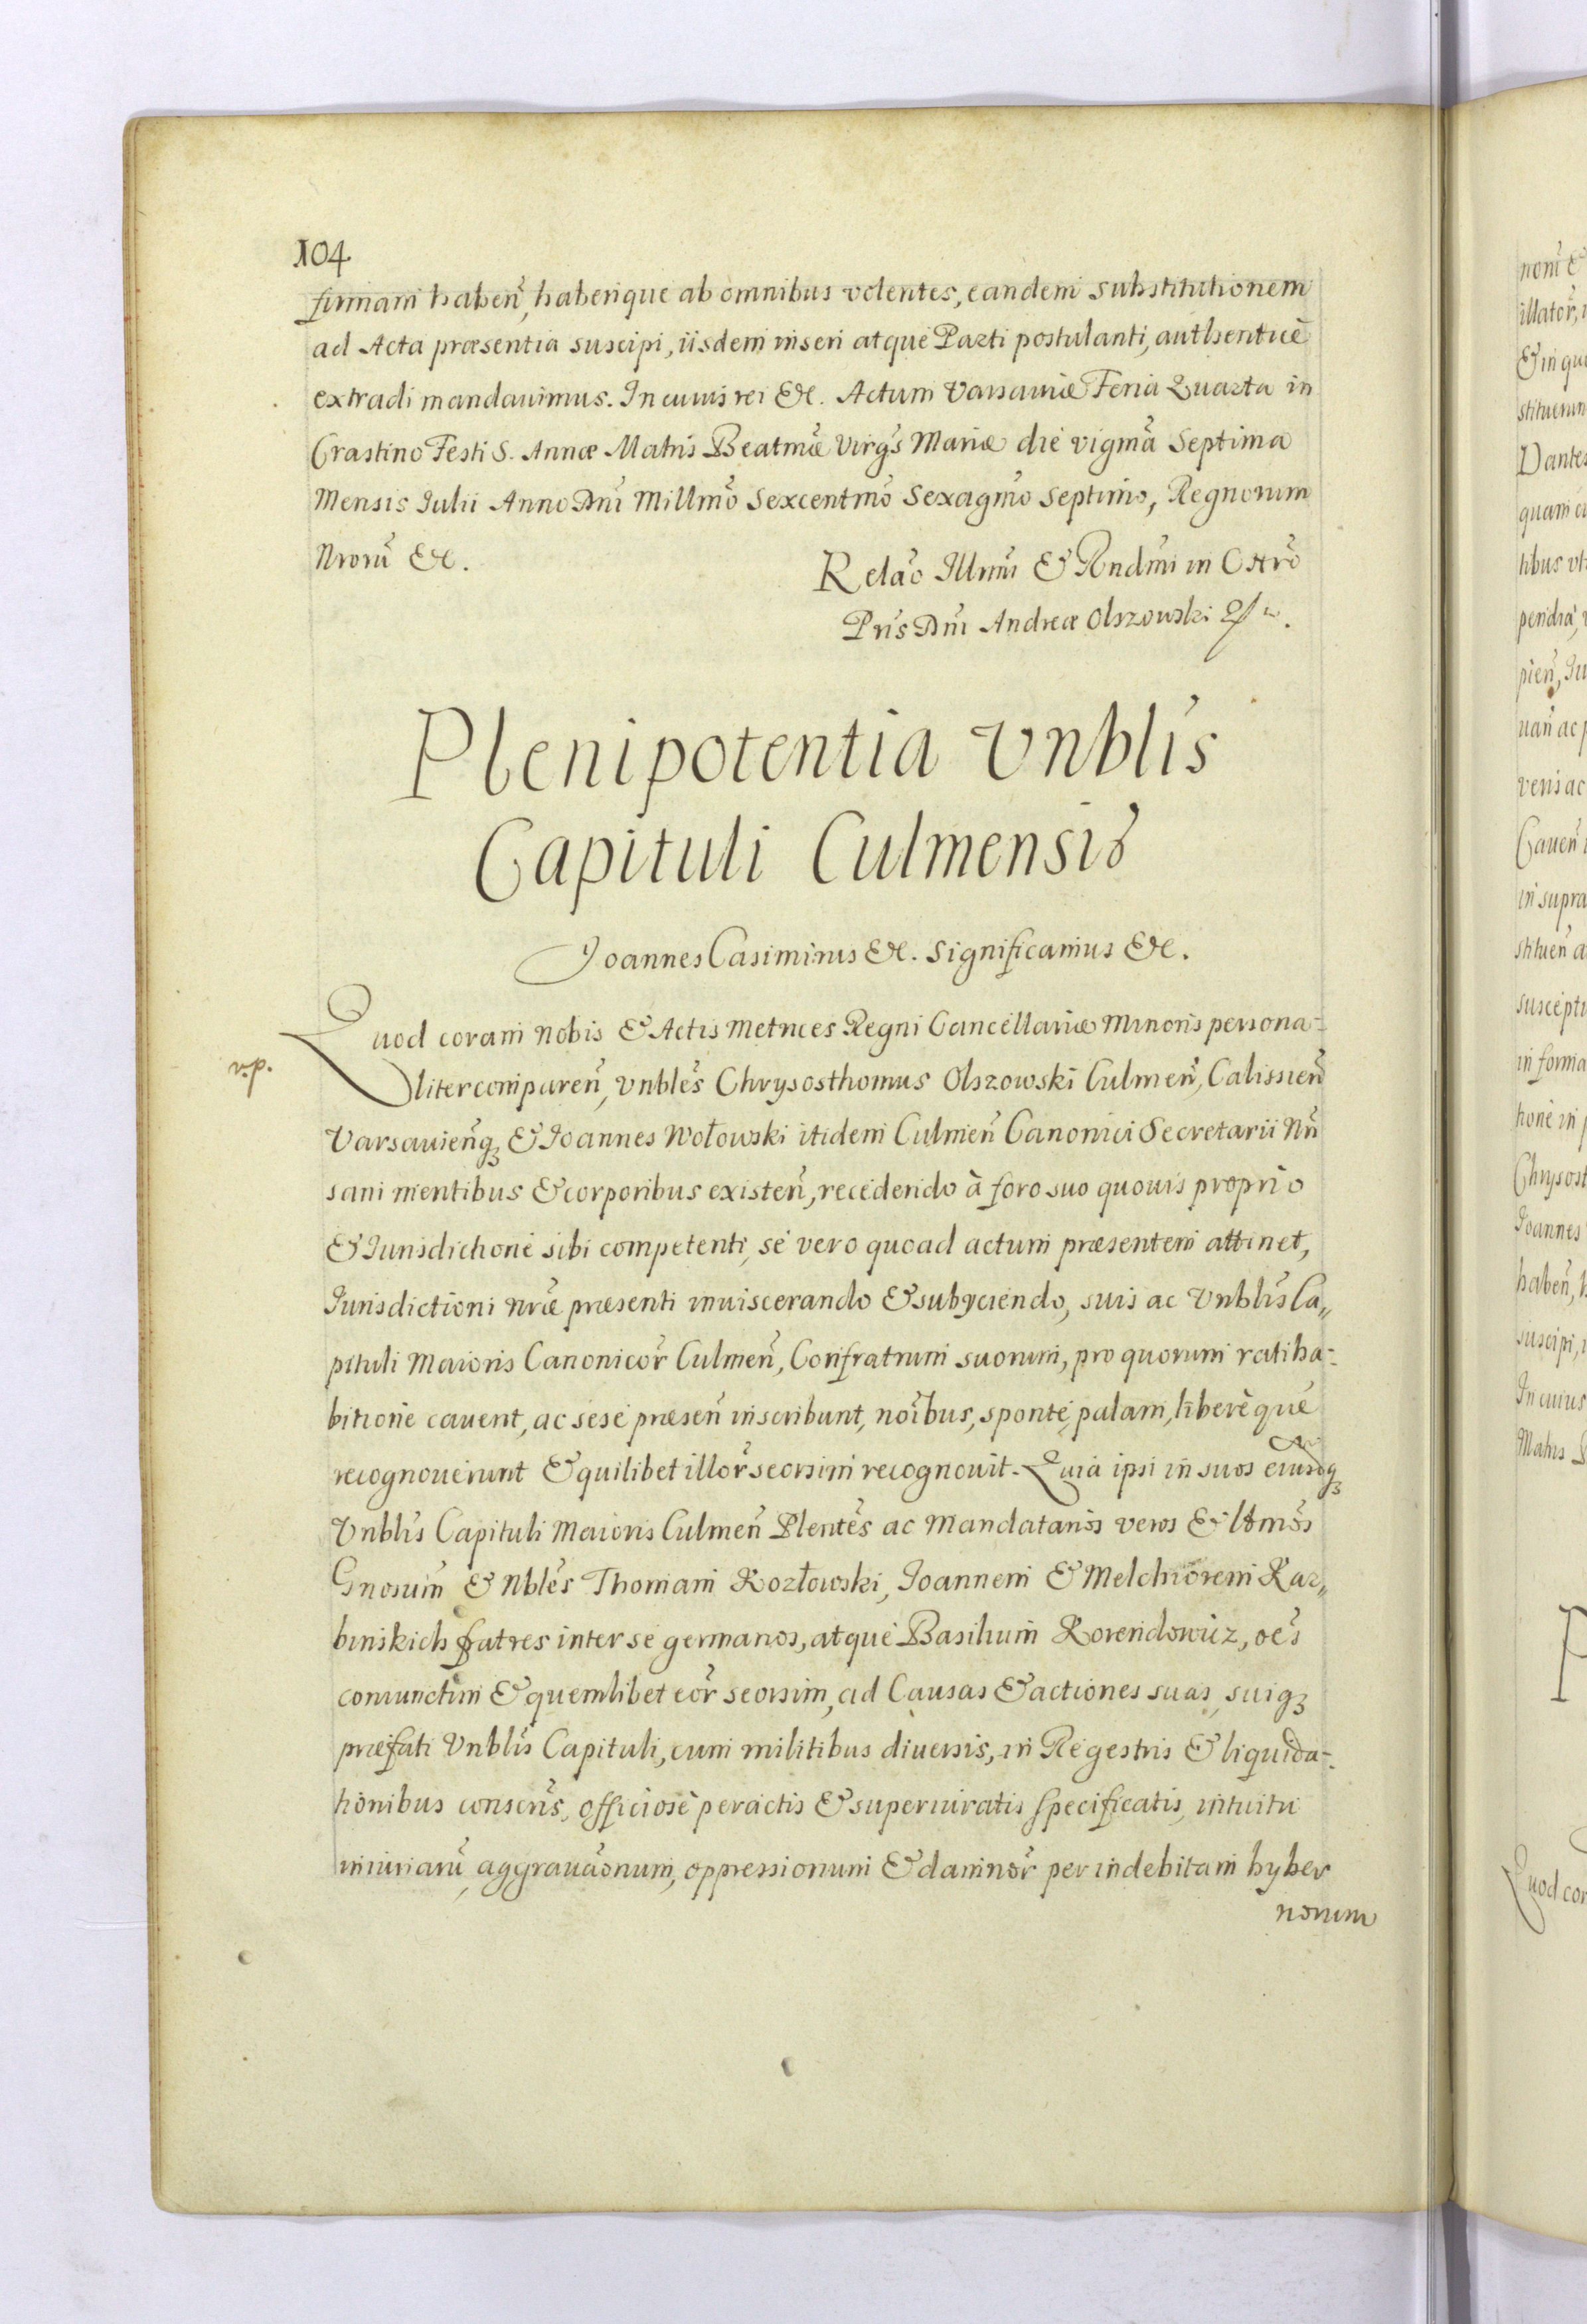 104
firmam haben̄, haberique ab omnibus volentes, eandem substitutionem
ad Acta præsentia suscipi, iisdem inseri atque Parti postulanti, authenticè
extradi mandauimus. In cuius rei &c. Actum Varsauiæ Feria Quarta in
Crastino Festi S. Annæ Matris Beatmǣ Virgīs Mariæ die vigmā Septima
Mensis Iulii Anno Dn̄i Millmō Sexcentmō Sexagmō Septimo, Regnorum
Nrorū &c.
Relāo Illrmī & Rndmī in Chrō
Prīs Dn̄i Andreæ Olszowski
Plenipotentia Vnblīs
Capituli Culmensis
Joannes Casimirus &c. Significamus &c.
Quod coram nobis & Actis Metrices Regni Cancellariæ Minoris persona-
v.p.
liter comparen̄, vnblēs Chrysosthomus Olszowski Culmen̄, Calissien̄
Varsauien̄q3 & Joannes Wołowski itidem Culmen̄ Canonici Secretarii Nr̄i
sani mentibus & corporibus existen̄, recedendo à foro suo quouis proprio
& Iurisdictione sibi competenti, se vero quoad actum præsentem attinet,
Iurisdictioni nrǣ præsenti inuiscerando & subyciendo, suis ac Vnblīs Ca„
pituli Maioris Canonicor̄ Culmen̄, Confratrum suorum, pro quorum ratiha-
bitione cauent, ac sese præsen̄ inscribunt, noībus, sponte, palam, liberèque
recognouerunt & quilibet illor̄ seorsim recognouit. Quia ipsi in suos eiusdq3
Vnblīs Capituli Maioris Culmen̄ Plentēs ac Mandatarios veros & lt̄mos
Gnosum̄ & Nblēs Thomam Kozłowski, Joannem & Melchiorem Kar„
binskich fratres inter se germanos, atque Basilium Korendowicz, oēs
coniunctim & quemlibet eor̄ seorsim, ad Causas & actiones suas, suiq3
præfati Vnblīs Capituli, cum militibus diuersis, in Regestris & liquida-
tionibus conscrīs, officiose peractis & superiuratis specificatis, intuitu
iniuriarū, aggrauāonum, oppressionum & damnor̄ per indebitam hyber
norum